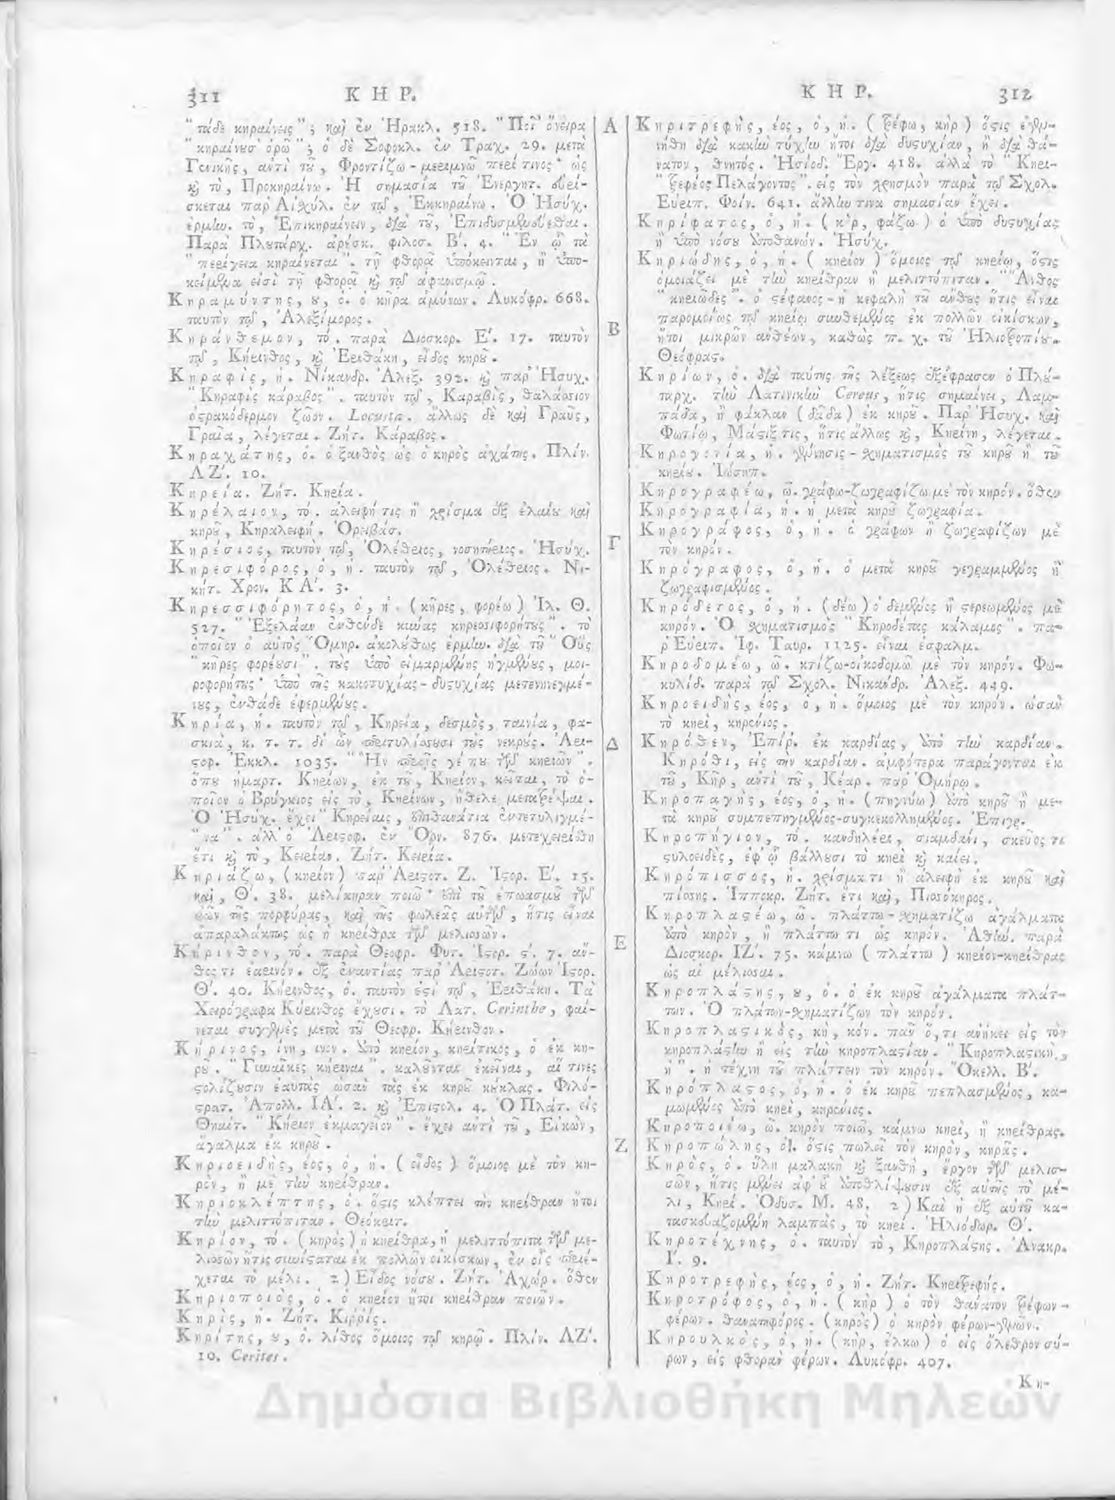 311 ΚΗΡ.
ΚΗΡ. 312
" τάδε κηραίνεις " ; καὶ ἐν Ἡρακλ. 518. " Ποῖ' ὄνειρα
" κηραίνουσ' ὁρῶ " ; ὁ δὲ Σοφοκλ. ἐν Τραχ. 29. μετὰ
Γενικῆς, ἀντὶ τοῦ, Φροντίζω - μεριμνῶ περί τινος· ὡς
καὶ τὸ, Προκηραίνω. Ἡ σημασία τοῦ Ἐνεργητ. εὑρί-
σκεται παρ' Αἰσχύλ. ἐν τῷ, Ἐκκηραίνω. Ὁ Ἡσύχ.
ἑρμην. τὸ, Ἐπικηραίνειν, διὰ τοῦ,
Παρὰ Πλυτάρχ. ἀρέσκ. φιλοσ. Β΄. 4. " Ἐν ᾧ τὰ
" περίγεια κηραίνεται ". τῇ φθορᾷ ὑπόκεινται, ἢ ὑπο-
κείμενα εἰσὶ τῇ φθορᾷ καὶ τῷ ἀφανισμῷ.
Κηραμύντης, ου, ὁ. ὁ κῆρα ἀμύνων. Λυκόφρ. 668.
ταυτὸν τῷ, Ἀλεξίμορος.
Κηράνθεμον, τό. παρὰ Διοσκορ. Ε΄. 17. ταυτὸν
τῷ, Κήρινθος, καὶ Ἐριθάκη, εἶδος κηροῦ.
Κηραφὶς, ἡ. Νίκανδρ. Ἀλεξ. 392. καὶ παρ' Ἡσυχ.
" Κηραφὶς κάραβος ". ταυτὸν τῷ, Καραβὶς, θαλάσσιον
ὀστρακόδερμον ζῶον. Locusta. ἄλλως δὲ καὶ Γραῦς,
Γραῖα, λέγεται. Ζήτ. Κάραβος.
Κηραχάτης, ὁ. ὁ ξανθὸς ὡς ὁ κηρὸς ἀχάτης. Πλίν.
ΛΖ΄. 10.
Κηρεία. Ζήτ. Κηρία.
Κηρέλαιον, τό. ἀλειφή τις ἢ χρίσμα ἐξ ἐλαίου καὶ
κηροῦ, Κηραλειφή. Ὀρειβάσ.
Κηρέσιος, ταυτὸν τῷ, Ὀλέθριος, νοσηρέριος. Ἡσύχ.
Κηρεσιφόρος, ὁ, ἡ. ταυτὸν τῷ, Ὀλέθριος. Νι-
κήτ. Χρον. ΚΑ΄. 3.
Κηρεσσιφόρητος, ὁ, ἡ. (κῆρες, φορέω) Ἰλ. Θ.
527. " Ἐξελάαν ἐνθένδε κύνας κηρεσσιφορήτους ". τὸ
ὁποῖον ὁ αὐτὸς Ὅμηρ. ἀκολούθως ἑρμην. διὰ τοῦ " Οὓς
" κῆρες φορέουσι ". τοὺς ὑπὸ εἱμαρμένης ἠγμένους, μοι-
ροφορήτους· ὑπὸ τῆς κακοτυχίας - δυστυχίας μετενηνεγμέ-
νους, ἐνθάδε ἐφερμένους.
Κηρία, ἡ. ταυτὸν τῷ, Κηρεία, δεσμὸς, ταινία, φα-
σκιὰ, κ. τ. τ. δι' ὧν περιτυλίσσουσι τοὺς νεκρούς. Ἀρι-
στοφ. Ἐκκλ. 1035. " Ἢν εὕρῃς γέ που τῶν κηρίων ".
ὅπου ἥμαρτ. Κηρίων, ἐκ τοῦ, Κηρίον, κεῖται, τὸ ὁ-
ποῖον ὁ Βρύγκιος εἰς τὸ, Κηρίνων, ἤθελε μετατρέψαι.
Ὁ Ἡσύχ. ἔχει " Κηρείαις, ἐπιθανάτια ἐντετυλιγμέ-
" να ". ἀλλ' ὁ Ἀριστοφ. ἐν Ὄρν. 876. μετεχειρίσθη
ἔτι καὶ τὸ, Κειρίαν. Ζήτ. Κειρία.
Κηριάζω, (κηρίον) παρ' Ἀριστοτ. Ζ. Ἱστορ. Ε΄. 15.
καὶ, Θ΄. 38. μελίκηραν ποιῶ· ἐπὶ τοῦ ἐπωασμοῦ τῶν
ὠῶν τῆς πορφύρας, καὶ τῆς φωλεᾶς αὐτῶν, ἥτις εἶναι
ἀπαραλάκτως ὡς ἡ κηρήθρα τῶν μελισσῶν.
Κήρινθον, τό. παρὰ Θεοφρ. Φυτ. Ἱστορ. ϛ΄. 7. ἄν-
θος τι ἐαρινόν. ἐξ ἐναντίας παρ' Ἀριστοτ. Ζώων Ἱστορ.
Θ΄. 40. Κήρινθος, ὁ. ταυτὸν ἐστὶ τῷ, Ἐριθάκη. Τὰ
Χειρόγραφα Κύρινθος ἔχουσι. τὸ Λατ. Cerinthe, φαί-
νεται συγγενὲς μετὰ τοῦ Θεοφρ. Κήρινθον.
Κήρινος, ίνη, ινον. ἀπὸ κηρίον, κηρίτικος, ὁ ἐκ κη-
ροῦ. " Γυναῖκες κήριναι ". καλοῦνται ἐκεῖναι, αἵ τινες
στολίζουσιν ἑαυτὰς ὡσὰν τὰς ἐκ κηροῦ κούκλας. Φιλό-
στρατ. Ἀπολλ. ΙΑ΄. 2. καὶ Ἐπιστολ. 4. Ὁ Πλάτ. εἰς
Θεαίτ. " Κήρινον ἐκμαγεῖον ". ἔχει ἀντὶ τοῦ, Εἰκὼν,
ἄγαλμα ἐκ κηροῦ.
Κηριοειδής, έος, ὁ, ἡ. (εἶδος) ὅμοιος μὲ τὸν κη-
ρὸν, ἢ μὲ τὴν κηρήθραν.
Κηριοκλέπτης, ὁ. ὅστις κλέπτει τὴν κηρήθραν ἤτοι
τὴν μελιττόπιταν. Θεόκριτ.
Κηρίον, τό. (κηρὸς) ἡ κηρήθρα, ἡ μελιττόπιτα τῶν με-
λισσῶν ἥτις συνίσταται ἐκ πολλῶν οἰκίσκων, ἐν οἷς περιέ-
χεται τὸ μέλι. 2) Εἶδος νόσου. Ζήτ. Ἀχώρ. ὅθεν
Κηριοποιὸς, ὁ. ὁ κηρίον ἤτοι κηρήθραν ποιῶν.
Κηρὶς, ἡ. Ζήτ. Κιρρίς.
Κηρίτης, ου, ὁ. λίθος ὅμοιος τῷ κηρῷ. Πλίν. ΛΖ΄.
10. Cerites.
Α
Β
Γ
Δ
Ε
Ζ
Κηριτρεφὴς, έος, ὁ, ἡ. (τρέφω, κὴρ) ὅστις ἐγεν-
νήθη διὰ κακὴν τύχην ἤτοι διὰ δυστυχίαν, ἢ διὰ θά-
νατον, θνητός. Ἡσίοδ. Ἔργ. 418. ἀλλὰ τὸ " Κηρι-
" τρεφέος Πελάγοντος ". εἰς τὸν χρησμὸν παρὰ τῷ Σχολ.
Εὐριπ. Φοίν. 641. ἄλλην τινα σημασίαν ἔχει.
Κηρίφατος, ὁ, ἡ. (κὴρ, φάζω) ὁ ὑπὸ δυστυχίας
ἢ ὑπὸ νόσου ἀποθανών. Ἡσύχ.
Κηριώδης, ὁ, ἡ. (κηρίον) ὅμοιος τῷ κηρίῳ, ὅστις
ὁμοιάζει μὲ τὴν κηρήθραν ἢ μελιττόπιταν. " Ἄνθος
" κηριῶδες ". ὁ στέφανος - ἡ κεφαλὴ τοῦ ἄνθους ἥτις εἶναι
παρομοίως τῷ κηρίῳ συνθεμένος ἐκ πολλῶν οἰκίσκων,
ἤτοι μικρῶν ἀνθέων, καθὼς π. χ. τοῦ Ἡλιοτροπίου.
Θεόφραστ.
Κηρίων, ὁ. διὰ ταύτης τῆς λέξεως ἐξέφρασεν ὁ Πλού-
ταρχ. τὴν Λατινικὴν Cereus, ἥτις σημαίνει, Λαμ-
πάδα, ἢ φάκλαν (δᾷδα) ἐκ κηροῦ. Παρ' Ἡσυχ. καὶ
Φωτίῳ, Μάστιξ τις, ἥτις ἄλλως καὶ, Κηρίνη, λέγεται.
Κηρογονία, ἡ. γέννησις - χηματισμὸς τοῦ κηροῦ ἢ τοῦ
κηρίου. Ἰώσηπ.
Κηρογραφέω, ῶ. γράφω-ζωγραφίζω μὲ τὸν κηρόν. ὅθεν
Κηρογραφία, ἡ. ἡ μετὰ κηροῦ ζωγραφία.
Κηρογράφος, ὁ, ἡ. ὁ γράφων ἢ ζωγραφίζων μὲ
τὸν κηρόν.
Κηρόγραφος, ὁ, ἡ. ὁ μετὰ κηροῦ γεγραμμένος ἢ
ζωγραφισμένος.
Κηρόδετος, ὁ, ἡ. (δέω) ὁ δεμένος ἢ στερεωμένος μὲ
κηρόν. Ὁ χηματισμὸς " Κηροδέτας κάλαμος ". πα-
ρ' Εὐριπ. Ἰφ. Ταυρ. 1125. εἶναι ἐσφαλμ.
Κηροδομέω, ῶ. κτίζω-οἰκοδομῶ μὲ τὸν κηρόν. Φω-
κυλίδ. παρὰ τῷ Σχολ. Νικάνδρ. Ἀλεξ. 449.
Κηροειδὴς, έος, ὁ, ἡ. ὅμοιος μὲ τὸν κηρόν. ὡσὰν
τὸ κηρὶ, κηρένιος.
Κηρόθεν, Ἐπίρ. ἐκ καρδίας, ἀπὸ τὴν καρδίαν.
Κηρόθι, εἰς τὴν καρδίαν. ἀμφότερα παράγονται ἐκ
τοῦ, Κῆρ, ἀντὶ τοῦ, Κέαρ. παρ' Ὁμήρῳ.
Κηροπαγὴς, έος, ὁ, ἡ. (πηγνύω) ἀπὸ κηροῦ ἢ με-
τὰ κηροῦ συμπεπηγμένος-συγκεκολλημένος. Ἐπιγρ.
Κηροπήγιον, τό. κανδηλέρι, σιαμδάνι, σκεῦός τι
στυλοειδὲς, ἐφ' ᾧ βάλλουσι τὸ κηρὶ καὶ καίει.
Κηρόπισσος, ἡ. χρίσμά τι ἢ ἀλειφὴ ἐκ κηροῦ καὶ
πίσσης. Ἱπποκρ. Ζήτ. ἔτι καὶ, Πισσόκηρος.
Κηροπλαστέω, ῶ. πλάττω - χηματίζω ἀγάλματα
ἀπὸ κηρὸν, ἢ πλάττω τι ὡς κηρόν. Ἀθήν. παρὰ
Διοσκορ. ΙΖ΄. 75. κάμνω (πλάττω) κηρίον-κηρήθρας
ὡς αἱ μέλισσαι.
Κηροπλάστης, ου, ὁ. ὁ ἐκ κηροῦ ἀγάλματα πλάτ-
των. Ὁ πλάττων-χηματίζων τὸν κηρόν.
Κηροπλαστικὸς, κὴ, κόν. πᾶν ὅ,τι ἀνήκει εἰς τὸν
κηροπλάστην ἢ εἰς τὴν κηροπλαστίαν. " Κηροπλαστικὴ,
ἡ ". ἡ τέχνη τοῦ πλάττειν τὸν κηρόν. Ὀκελλ. Β΄.
Κηρόπλαστος, ὁ, ἡ. ὁ ἐκ κηροῦ πεπλασμένος, κα-
μωμένος ἀπὸ κηρὶ, κηρένιος.
Κηροποιέω, ῶ. κηρὸν ποιῶ, κάμνω κηρὶ, ἢ κηρήθρας.
Κηροπώλης, ὁ. ὅστις πωλεῖ τὸν κηρὸν, κηρᾶς.
Κηρὸς, ὁ. ὕλη μαλακὴ καὶ ξανθὴ, ἔργον τῶν μελισ-
σῶν, ἥτις μένει ἀφ' οὗ ἀποθλίψουσιν ἐξ αὐτῆς τὸ μέ-
λι, Κηρί. Ὀδυσ. Μ. 48. 2) Καὶ ἡ ἐξ αὐτοῦ κα-
τασκευαζομένη λαμπὰς, τὸ κηρί. Ἡλιόδωρ. Θ΄.
Κηροτέχνης, ὁ. ταυτὸν τὸ, Κηροπλάστης. Ἀνακρ.
Ι΄. 9.
Κηροτρεφὴς, έος, ὁ, ἡ. Ζήτ. Κηριτρεφής.
Κηροτρόφος, ὁ, ἡ. (κὴρ) ὁ τὸν θάνατον τρέφων -
φέρων. θανατηφόρος. (κηρὸς) ὁ κηρὸν φέρων-γεννῶν.
Κηρουλκὸς, ὁ, ἡ. (κὴρ, ἕλκω) ὁ εἰς ὄλεθρον σύ-
ρων, εἰς φθορὰν φέρων. Λυκόφρ. 407.
Κη-
Δημόσια Βιβλιοθήκη Μηλεών